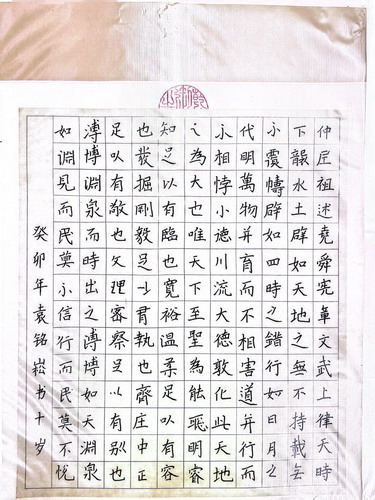 仲尼祖述堯舜憲章文武上律天時
下襲水土辟如天地之無不持載無
不覆幬辟如四時之錯行如日月之
代明萬物并育而不相害道并行而
不相悖小德川流大德敦化此天地
之為大也唯天下至聖為能聰明睿
知足以有臨也寬裕溫柔足以有容
也發強剛毅足以有執也齊庄中正
足以有敬也文理密察足以有別也
溥博淵泉而時出之溥博如天淵泉
如淵見而民莫不信行而民莫不悅
癸卯年袁铭崧书十岁